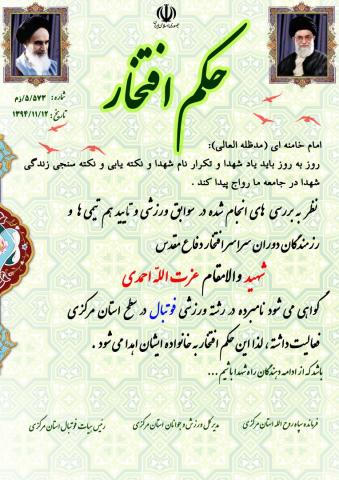 جمهوری اسلامی ایران
حکم افتخار
شماره: ۵/۵۷۳/ذم
تاریخ: ۱۳۹۴/۱۱/۱۲
امام خامنه ای (مدظله العالی):
روز به روز باید یاد شهدا و تکرار نام شهدا و نکته یابی و نکته سنجی زندگی
شهدا در جامعه ما رواج پیدا کند .
نظر به بررسی های انجام شده در سوابق ورزشی و تایید هم تیمی ها و
رزمندگان دوران سراسر افتخار دفاع مقدس
شهید والامقام عزت الله احمدی
گواهی می شود نامبرده در رشته ورزشی فوتبال در سطح استان مرکزی
فعالیت داشته ، لذا این حکم افتخار به خانواده ایشان اهدا می شود .
باشد که از ادامه دهندگان راه شهدا باشیم ...
فرمانده سپاه روح الله استان مرکزی
مدیر کل ورزش و جوانان استان مرکزی
رئیس هیات فوتبال استان مرکزی